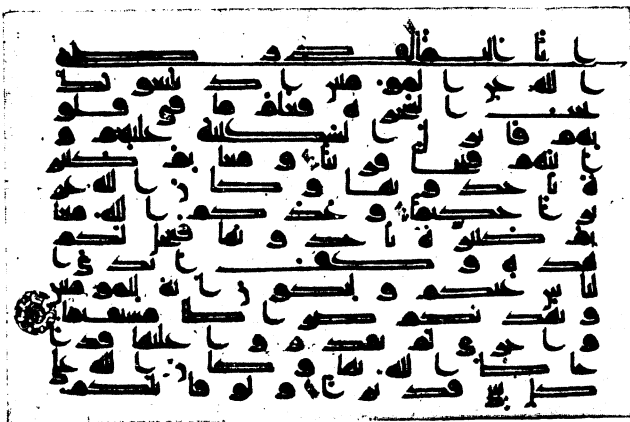 ابا اليما لقد رضى
الله عن المومنين اذ يبايعونك
تحت الشجرة فعلم ما في قلو
بهم فانزل السكينة عليهم و
اثبهم فتحا قريبا و مغانم كثير
ة ياخذونها و كان الله عز
يزا حكيما وعدكم الله مغا
نم كثيرة تاخذونها فعجل لكم
هذه و كف ايدي ا
لناس عنكم و لتكون اية للمومنين
و يهديكم صرطا مستقيما
و اخرى لم تقدروا عليها قد ا
حاط الله بها و كان الله على
كل شي قديرا و لو قتلكم